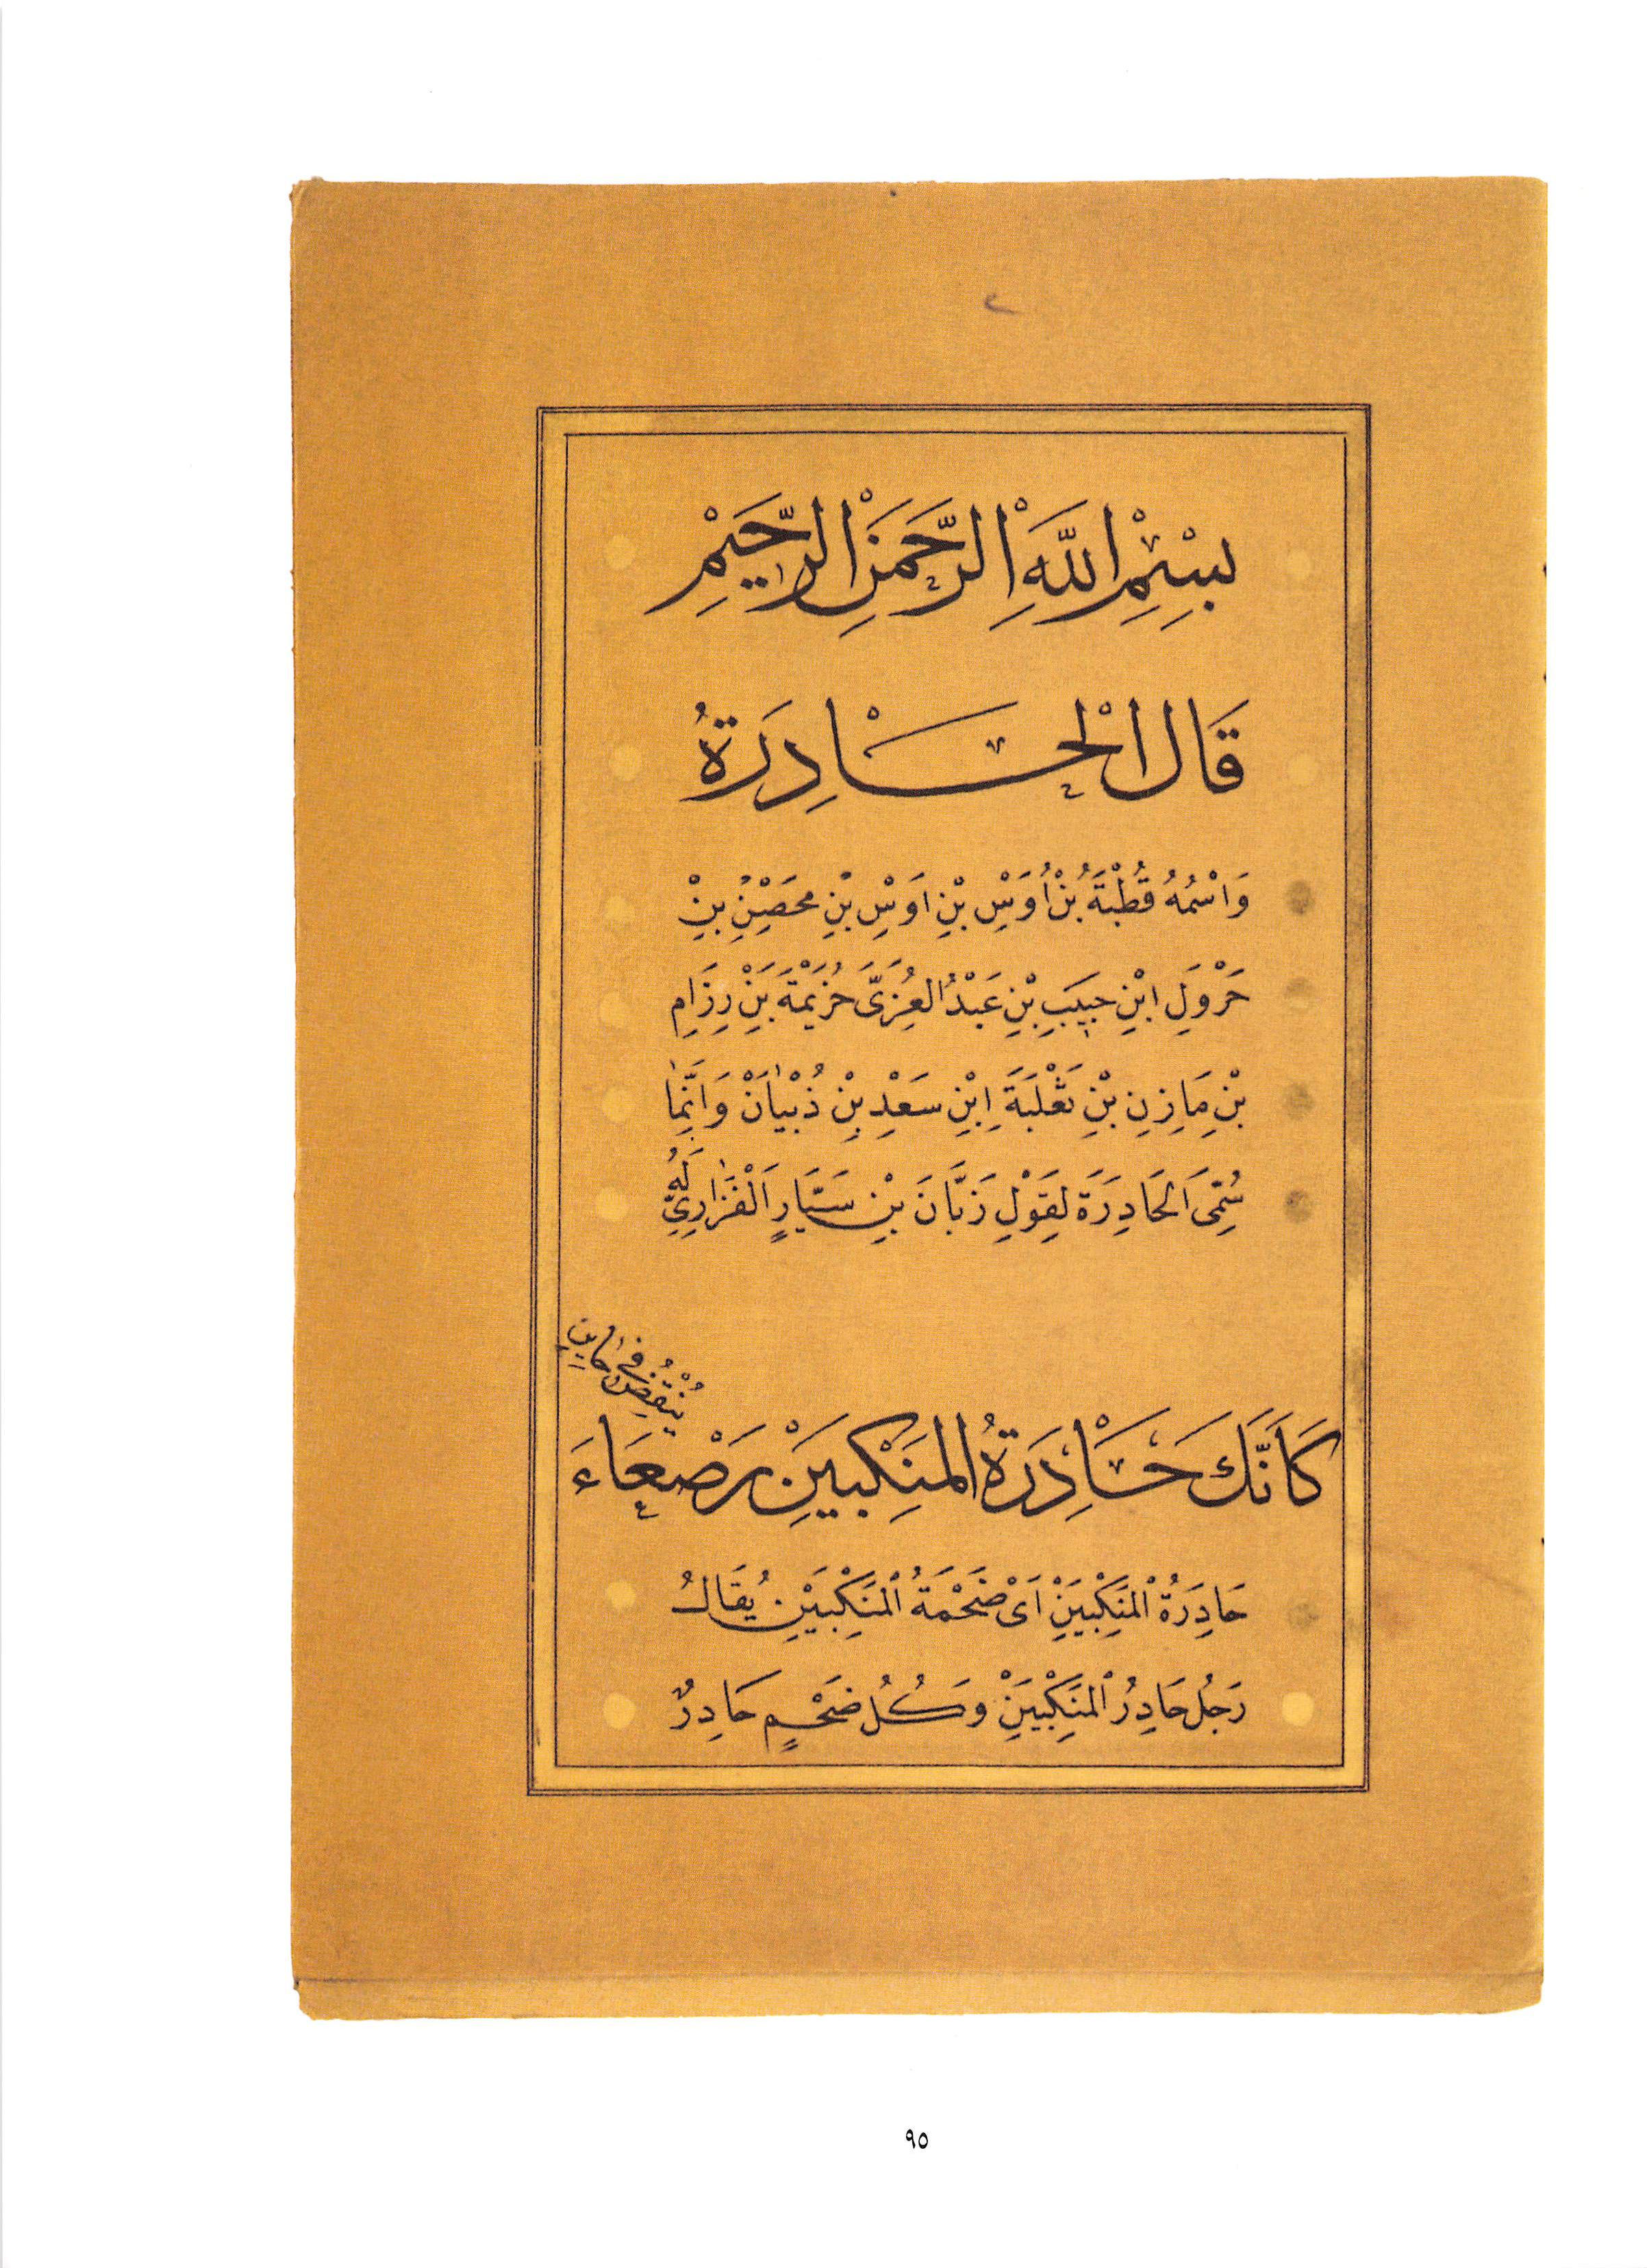 بِسْمِ اللَّهِ الرَّحْمَنِ الرَّحِيمِ
قَالَ الْحَادِرَةُ
وَاسْمُهُ قُطْبَةُ بْنُ أَوْسِ بْنِ اَوْسِ بْنِ مِحْصَنِ بْنِ
جَرْوَلِ ابْنِ حَبِيبِ بْنِ عَبْدُ العُزَّى خُزَيْمَةَ بْنِ رِزَامِ
بْنِ مَازِنِ بْنِ ثَعْلَبَةَ اِبْنِ سَعْدِ بْنِ ذُبْيَانْ وَاِنَّمَا
سُمِّىَ الحَادِرَةَ لِقَوْلِ زَبَّانَ بْنِ سَيَّارٍ اَلْفَزَارِيِّ لَهُ
كَاَنَّكَ حَادِرَةُ المَنْكِبَيْنِ رَصْعَاءَ
تُنْقِضُ فِي حَايِرِ
حَادِرَةُ الْمَنْكِبَيْنِ اَىْ ضَخْمَةُ الْمَنْكِبَيْنِ يُقَالُ
رَجُل حَادِرُ الْمَنْكِبَيْنِ وَكُلُ ضَخْمٍ حَادِرٌ
٩٥